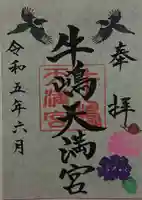 奉拝
牛嶋天満宮
令和五年六月